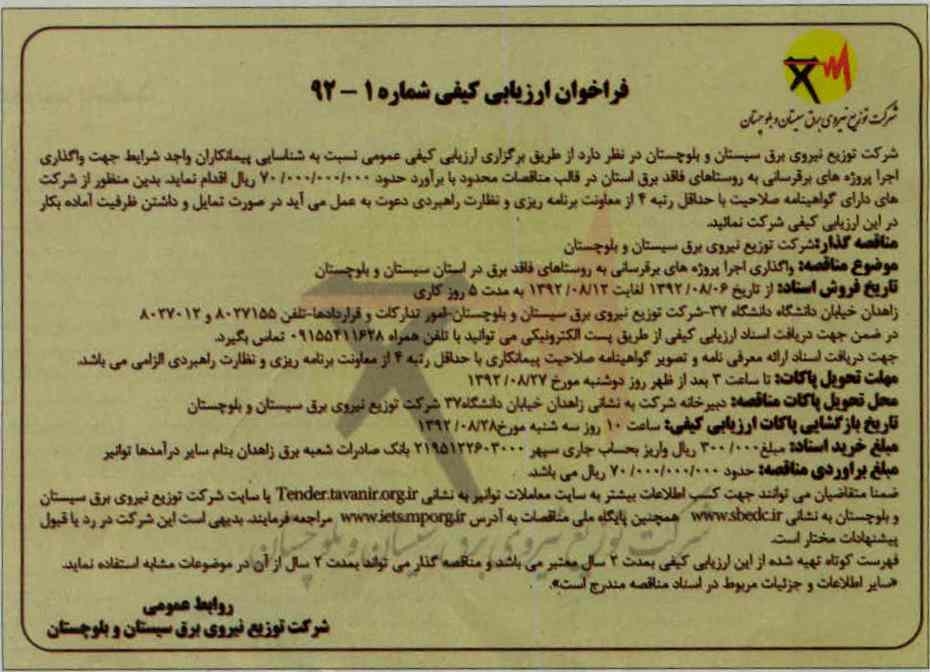 فراخوان ارزیابی کیفی شماره ۱ – ۹۲
شرکت توزیع نیروی برق سیستان و بلوچستان
شرکت توزیع نیروی برق سیستان و بلوچستان در نظر دارد از طریق برگزاری ارزیابی کیفی عمومی نسبت به شناسایی پیمانکاران واجد شرایط جهت واگذاری
اجرا پروژه های برقرسانی به روستاهای فاقد برق استان در قالب مناقصات محدود با برآورد حدود ۷۰/۰۰۰/۰۰۰/۰۰۰ ریال اقدام نماید. بدین منظور از شرکت
های دارای گواهینامه صلاحیت با حداقل رتبه ۴ از معاونت برنامه ریزی و نظارت راهبردی دعوت به عمل می آید در صورت تمایل و داشتن ظرفیت آماده بکار
در این ارزیابی کیفی شرکت نمائید.
مناقصه گذار: شرکت توزیع نیروی برق سیستان و بلوچستان
موضوع مناقصه: واگذاری اجرا پروژه های برقرسانی به روستاهای فاقد برق در استان سیستان و بلوچستان
تاریخ فروش اسناد: از تاریخ ۱۳۹۲/۰۸/۰۶ لغایت ۱۳۹۲/۰۸/۱۲ به مدت ۵ روز کاری
زاهدان خیابان دانشگاه دانشگاه ۳۷-شرکت توزیع نیروی برق سیستان و بلوچستان-امور تدارکات و قراردادها-تلفن ۸۰۲۷۱۵۵ و ۸۰۲۷۰۱۲
در ضمن جهت دریافت اسناد ارزیابی کیفی از طریق پست الکترونیکی می توانید با تلفن همراه ۰۹۱۵۵۴۱۱۶۲۸ تماس بگیرد.
جهت دریافت اسناد ارائه معرفی نامه و تصویر گواهینامه صلاحیت پیمانکاری با حداقل رتبه ۴ از معاونت برنامه ریزی و نظارت راهبردی الزامی می باشد.
مهلت تحویل پاکات: تا ساعت ۳ بعد از ظهر روز دوشنبه مورخ ۱۳۹۲/۰۸/۲۷
محل تحویل پاکات مناقصه: دبیرخانه شرکت به نشانی زاهدان خیابان دانشگاه۳۷ شرکت توزیع نیروی برق سیستان و بلوچستان
تاریخ بازگشایی پاکات ارزیابی کیفی: ساعت ۱۰ روز سه شنبه مورخ۱۳۹۲/۰۸/۲۸
مبلغ خرید اسناد: مبلغ۳۰۰/۰۰۰ ریال واریز بحساب جاری سپهر ۲۱۹۵۱۲۲۶۰۳۰۰۰ بانک صادرات شعبه برق زاهدان بنام سایر درآمدها توانیر
مبلغ برآوردی مناقصه: حدود ۷۰/۰۰۰/۰۰۰/۰۰۰ ریال می باشد.
ضمنا متقاضیان می توانند جهت کسب اطلاعات بیشتر به سایت معاملات توانیر به نشانی Tender.tavanir.org.ir یا سایت شرکت توزیع نیروی برق سیستان
و بلوچستان به نشانی www.sbedc.ir همچنین پایگاه ملی مناقصات به آدرس www.iets.mporg.ir مراجعه فرمایند. بدیهی است این شرکت در رد یا قبول
پیشنهادات مختار است.
فهرست کوتاه تهیه شده از این ارزیابی کیفی بمدت ۲ سال معتبر می باشد و مناقصه گذار می تواند بمدت ۲ سال از آن در موضوعات مشابه استفاده نماید.
«سایر اطلاعات و جزئیات مربوط در اسناد مناقصه مندرج است».
روابط عمومی
شرکت توزیع نیروی برق سیستان و بلوچستان
شرکت توزیع نیروی برق سیستان و بلوچستان